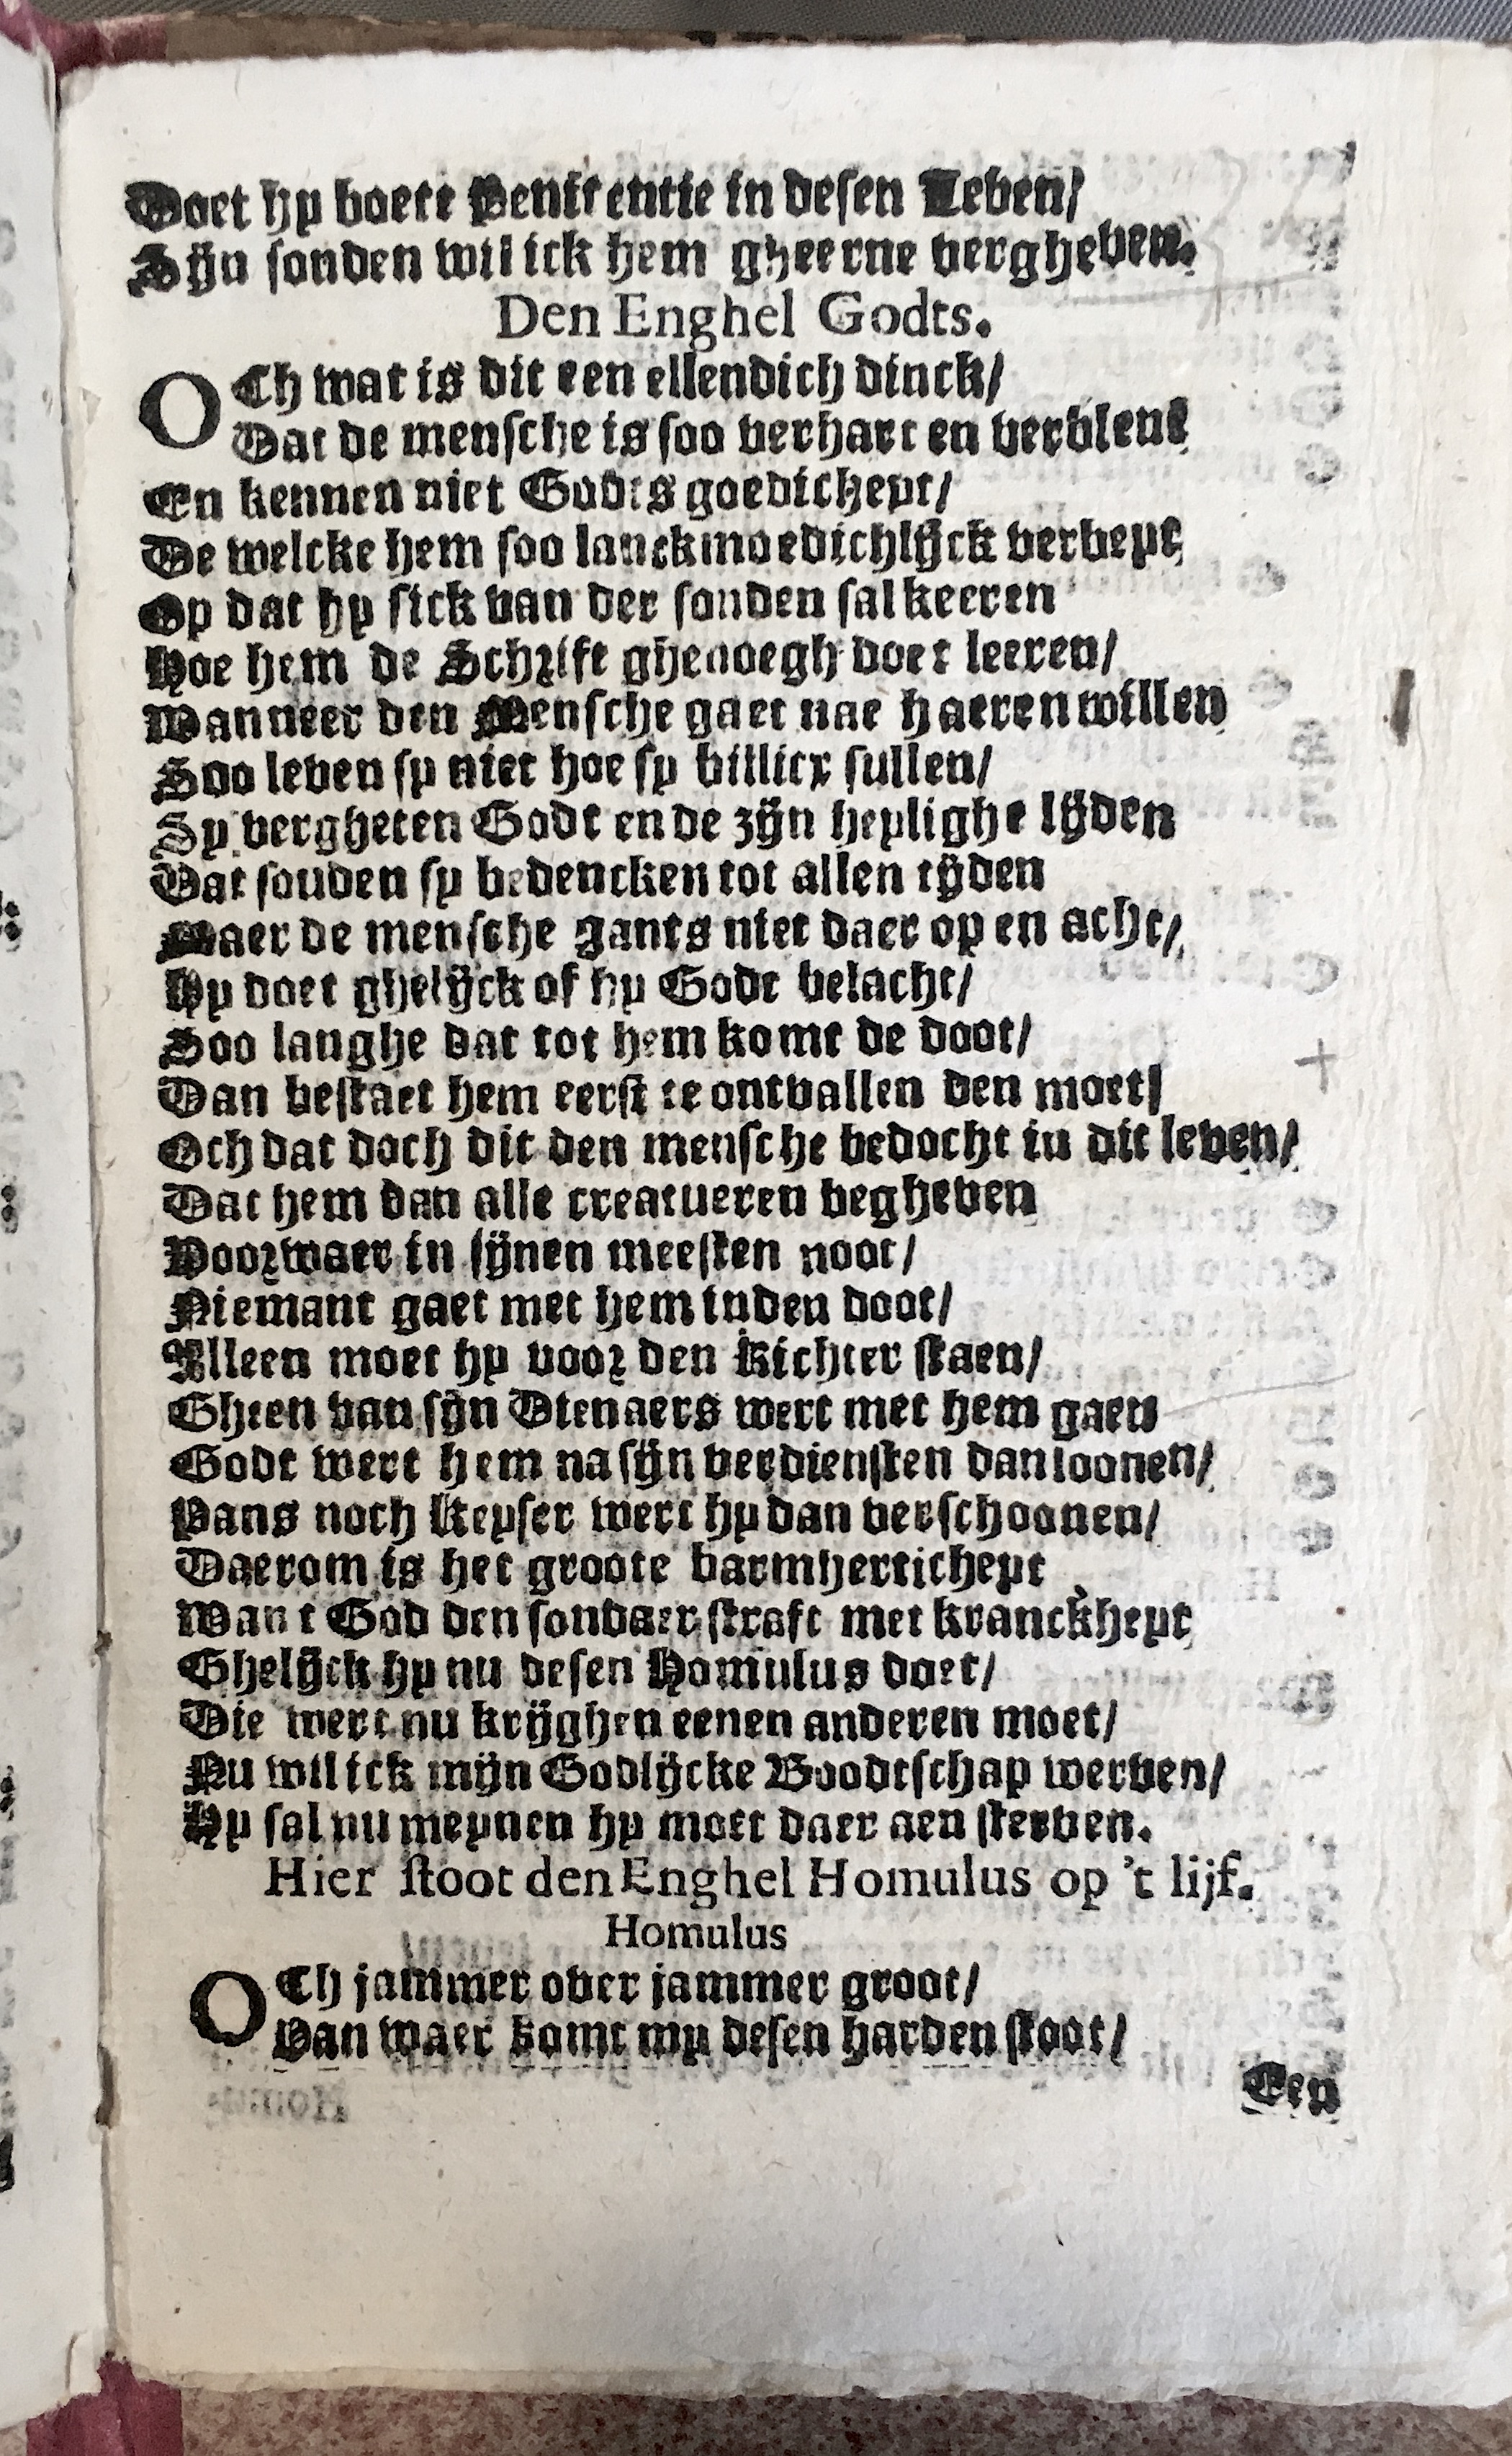 Doet hy boete Penitentie in desen Leven/
Sijn sonden wil ick hem gheerne vergheven.
Den Enghel Godts.
OCh wat is dit een ellendich dinck/
Dat de mensche is soo verhart en verblent
En kennen niet Godts goedicheyt/
De welcke hem soo lanckmoedichlijck verbeyt,
Op dat hy sick van der sonden sal keeren
Hoe hem de Schrift ghenoegh doet leeren/
Wanneer den Mensche gaet nae haeren willen
Soo leven sy niet hoe sy billicx sullen/
Sy vergheten Godt ende zijn heylighe lijden
Dat souden sy bedencken tot allen tijden
Maer de mensche gants niet daer op en acht/
Hy doet ghelijck of hy Godt belacht/
Soo langhe dat tot hem komt de doot/
Dan bestaet hem eerst te ontvallen den moet/
Och dat doch dit den mensche bedocht in dit leven/
Dat hem dan alle creatueren begheven
Voorwaer in sijnen meesten noot/
Niemant gaet met hem inden doot/
Alleen moet hy voor den Richter staen/
Gheen van sijn Dienaers wert met hem gaen
Godt wert hem na sijn verdiensten dan loonen/
Pans noch Keyser wert hy dan verschoonen/
Daerom is het groote barmherticheyt
Want God den sondaer straft met kranckheyt
Ghelijck hy nu desen Homulus doet/
Die wert nu krijghen eenen anderen moet/
Nu wil ick mijn Godlijcke Boodtschap werven/
Hy sal nu meynen hy moet daer aen sterven.
Hier stoot den Enghel Homulus op 't lijf.
Homulus
OCh jammer over jammer groot/
Van waer komt my desen harden stoot/
Een